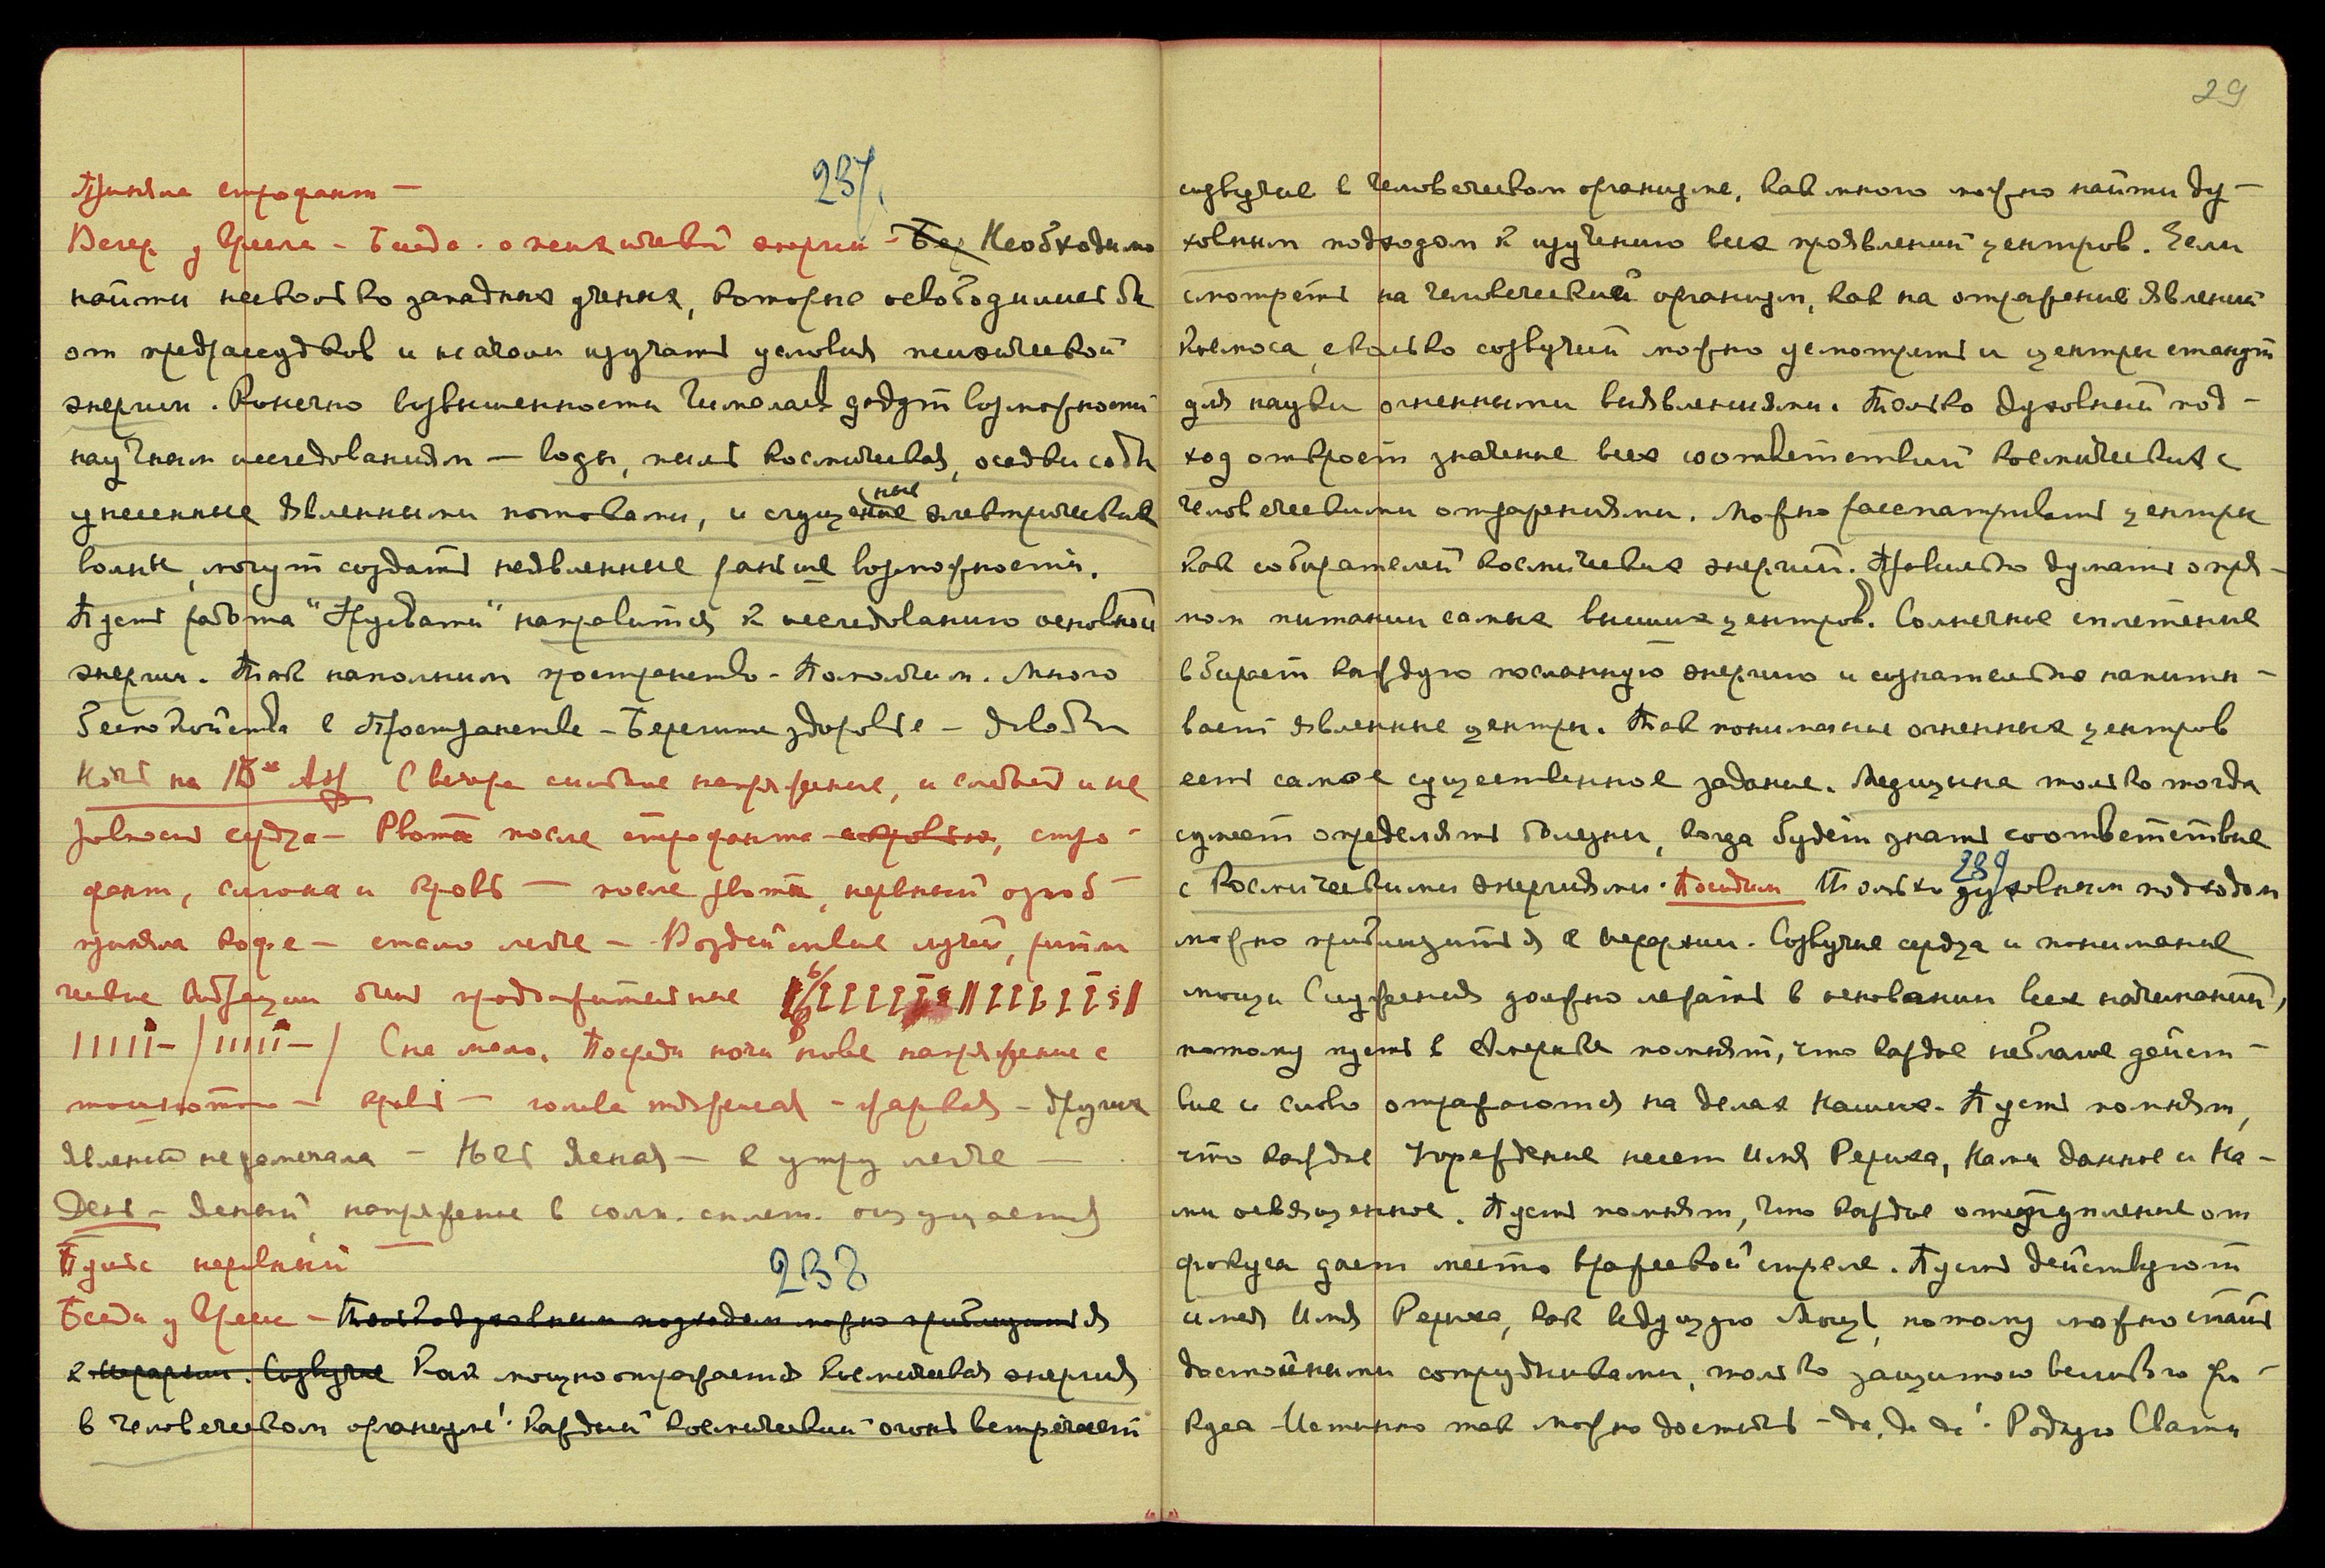 237.
Приняла строфант —
Вечер у Чеела - Беседа о психической энергии - Без Необходимо
найти несколько западных ученых, которые освободились бы
от предрассудков и начали изучать условия психической
энергии. Конечно возвышенности Гималаев дадут возможности
научным исследованиям — воды, пыль космическая, осадки соды
унесенные явленными потоками, и сгущенные электрические
волны, могут создать неявленные раньше возможности.
Пусть работа "Урусвати" направится к исследованию основной
энергии. Так наполним пространство - Помолчим. Много
беспокойства в Пространстве - Берегите здоровье -
Ночь на 15ое Авг С вечера сильное напряжение, и слабость и не
ровность сердца - Рвота после строфанта с кровью, стро-
фант, слюна и кровь — после рвоты, нервный озноб —
приняла кофе — стало легче — Воздействие лучей, ритми
ческие вибрации были продолжительные
IIIII — / IIIII — / Сна мало. Посреди ночи новое напряжение с
тошнотою — кровь — голова тяжелая - жаркая - других
явлений не замечала — Ночь ясная — к утру легче —
День - ясный напряжение в солн. сплет. ощущается
Пульс неровный
238
Беседа у — Только духовным подходом можно приблизиться
к Иерархии. Созвучие Как мощно отражается космическая энергия
в человеческом организме! Каждый космический огонь встречает
29
созвучие в человеческом организме, как много можно найти ду-
ховным подходом к изучению всех проявлений центров. Если
смотреть на человеческий организм, как на отражение явлений
Космоса, сколько созвучий можно усмотреть и центры станут
для науки огненными выявлениями. Только духовный под-
ход откроет значение всех соответствий космических с
человеческими отражениями. Можно рассматривать центры
как собирателей космических энергий. Правильно думать о пря-
мом питании самых высших центров. Солнечное сплетение
вбирает каждую посланную энергию и сознательно напиты-
вает явленные центры. Так понимание огненных центров
есть самое существенное задание. Медицина только тогда
сумеет определять болезни, когда будет знать соответствие
239
с Космическими энергиями. Посидим Только духовным подходом
можно приблизиться к Иерархии. Созвучие сердца и понимание
мощи Служения должно лежать в основании всех начинаний,
потому пусть в Америке помнят, что каждое неблагое дейст-
вие и слово отражаются на делах Наших. Пусть помнят,
что каждое Учреждение несет Имя Рериха, Нами данное и На-
ми освященное. Пусть помнят, что каждое отступление от
фокуса дает место вражеской стреле. Пусть действуют
имея Имя Рериха, как ведущую Мощь, потому можно стать
достойными сотрудниками, только защитою великого фо-
куса - Истинно так можно достичь - да, да да! Родную Свати